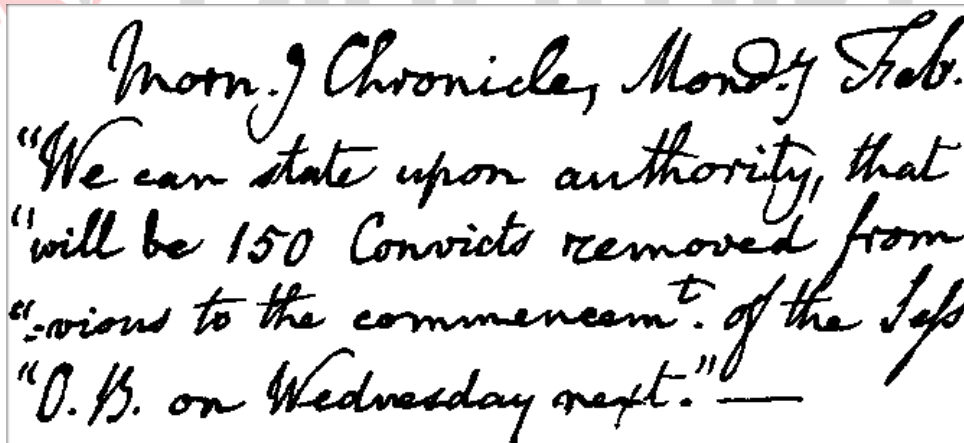 Morn.g Chronicle, Mond.y Feb.
"We can state upon authority, that
"will be 150 Convicts removed from
"-vious to the commencem.t of the Sess
"O. B. on Wednesday next." —